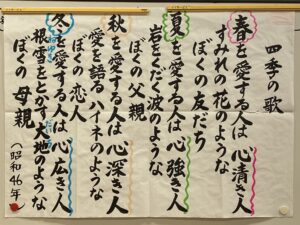 四季の歌
春を愛する人は心清き人
すみれの花のような
ぼくの友だち
夏を愛する人は心強き人
岩をくだく波のような
ぼくの父親
秋を愛する人は心深き人
愛を語るハイネのような
ぼくの恋人
冬を愛する人は心広き人
根雪をとかす大地のような
ぼくの母親
(昭和46年)